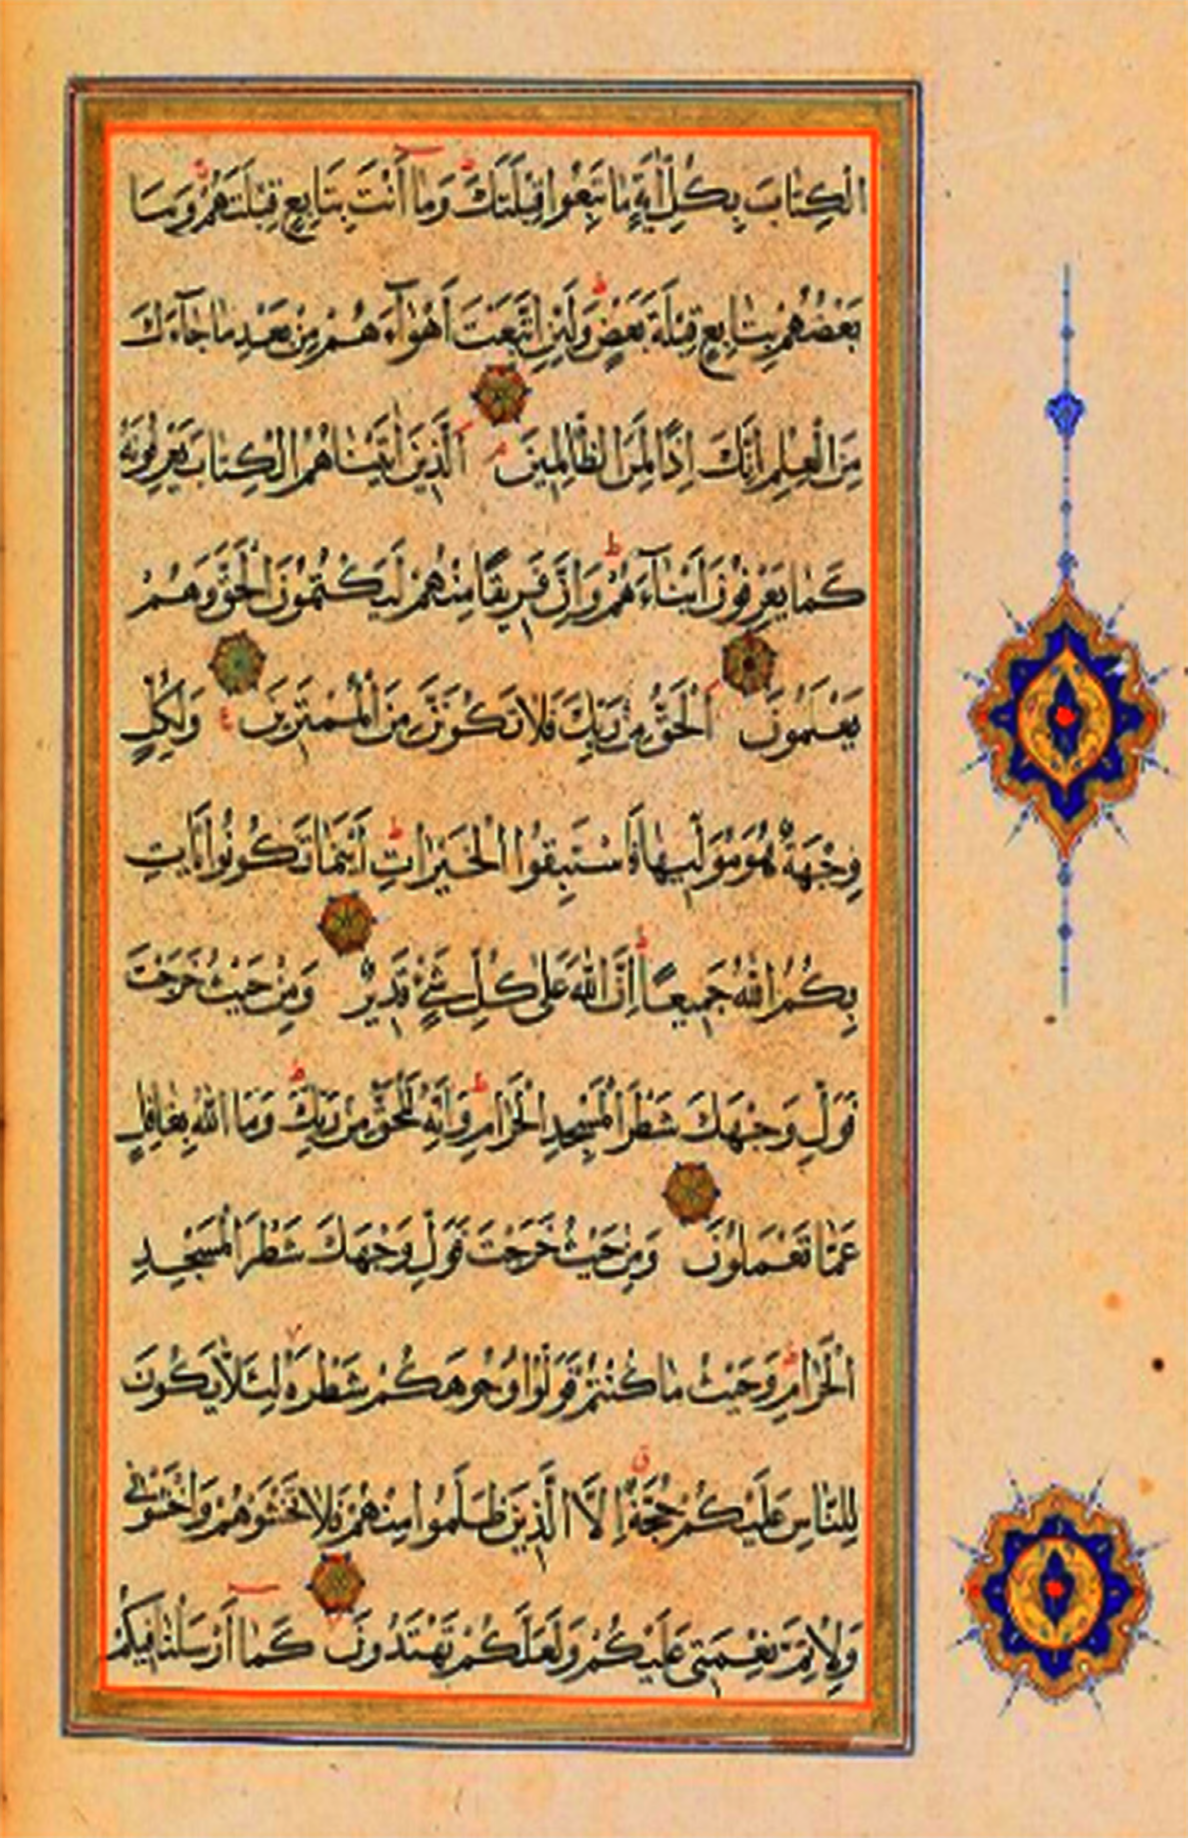 الْكِتَابَ بِكُلِّ اٰيَةٍ مَا تَبِعُوا قِبْلَتَكَ ط وَمَا أَنْتَ بِتَابِعٍ قِبْلَتَهُمْ وَمَا
بَعْضُهُمْ بِتَابِعٍ قِبْلَةَ بَعْضٍ ط وَلَئِنِ اتَّبَعْتَ اَهْوَآءَ هُمْ مِنْ بَعْدِ مَا جَآءَكَ
مِنَ الْعِلْمِ اِنَّكَ اِذًا لَمِنَ الظَّالِمِينَ م اَلَّذِينَ اٰتَيْنَاهُمُ الْكِتَابَ يَعْرِفُونَهُ
كَمَا يَعْرِفُونَ اَبْنَآءَهُمْ ط وَاِنَّ فَرِيقًا مِنْهُمْ لَيَكْتُمُونَ الْحَقَّ وَهُمْ
يَعْلَمُونَ اَلْحَقُّ مِنْ رَبِّكَ فَلَا تَكُونَنَّ مِنَ الْمُمْتَرِينَ ع وَلِكُلٍّ
وِجْهَةٌ هُوَ مُوَلِّيهَا فَاسْتَبِقُوا الْخَيْرَاتِ ط اَيْنَمَا تَكُونُوا يَأْتِ
بِكُمُ اللّٰهُ جَمِيعًا ط اِنَّ اللّٰهَ عَلٰى كُلِّ شَيْءٍ قَدِيرٌ وَمِنْ حَيْثُ خَرَجْتَ
فَوَلِّ وَجْهَكَ شَطْرَ الْمَسْجِدِ الْحَرَامِ ط وَاِنَّهُ لَلْحَقُّ مِنْ رَبِّكَ ط وَمَا اللّٰهُ بِغَافِلٍ
عَمَّا تَعْمَلُونَ وَمِنْ حَيْثُ خَرَجْتَ فَوَلِّ وَجْهَكَ شَطْرَ الْمَسْجِدِ
الْحَرَامِ ط وَحَيْثُ مَا كُنْتُمْ فَوَلُّوا وُجُوهَكُمْ شَطْرَهُ لِئَلَّا يَكُونَ
لِلنَّاسِ عَلَيْكُمْ حُجَّةٌ ق اِلَّا الَّذِينَ ظَلَمُوا مِنْهُمْ فَلَا تَخْشَوْهُمْ وَاخْشَوْنِي
وَلِاُتِمَّ نِعْمَتِي عَلَيْكُمْ وَلَعَلَّكُمْ تَهْتَدُونَ كَمَا اَرْسَلْنَا فِيكُمْ